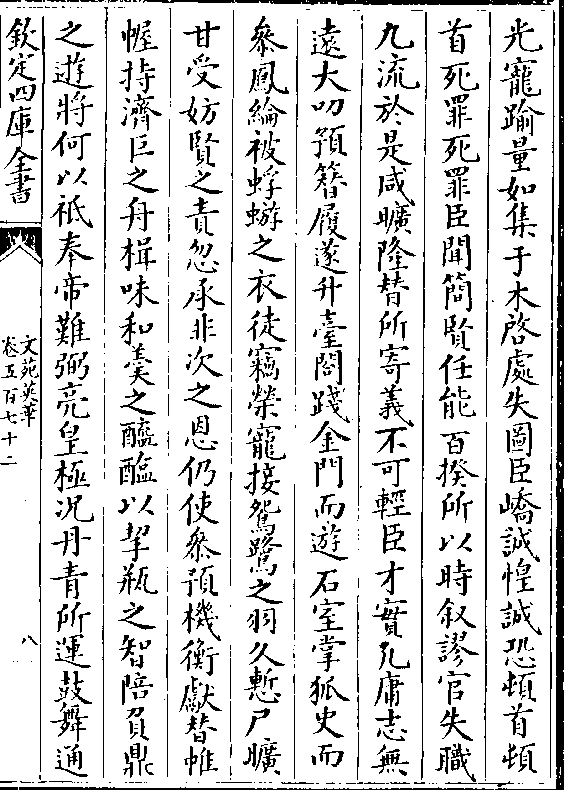 光寵踰量如集于木啓處失圖臣嶠誠惶誠恐頓首頓
首死罪死罪臣聞簡賢任能百揆所以時叙謬官失職
九流於是咸曠隆替所寄義不可輕臣才實凡庸志無
遠大叨預簪履遂升臺閤踐金門而遊石室掌狐史而
叅鳳綸被蜉蝣之衣徒竊榮寵接鴛鷺之羽久慙尸曠
甘受妨賢之責忽承非次之恩仍使叅預機衡獻替帷
幄持濟巨之舟楫味和羮之醯醢以挈瓶之智陪負鼎
之遊將何以祗奉帝難弼亮皇極況丹青所運鼓舞通
欽定四庫全書
文苑英華
卷五百七十二
八